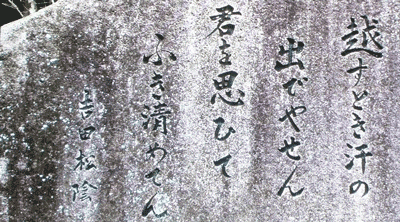 越すとき汗の
出でやせん
君を思ひて
ふき清めてん
吉田松陰